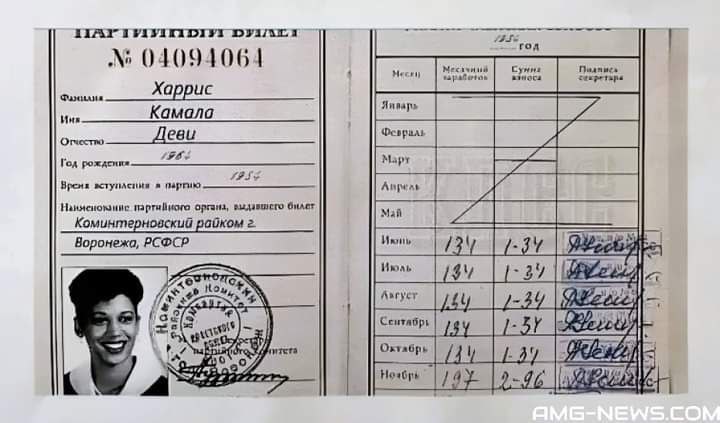 ПАРТИЙНЫЙ БИЛЕТ
№ 04094064
Фамилия Харрис
Имя Камала
Отчество Деви
Год рождения 1964
Время вступления в партию 1954
Наименование партийного органа, выдавшего билет
Коминтерновский райком г.
Воронежа, РСФСР
партийного комитета
1956 год
Месяц Месячный заработок Сумма взноса Подпись секретаря
Январь
Февраль
Март
Апрель
Май
Июнь 134 1-34
Июль 134 1-34
Август 134 1-34
Сентябрь 134 1-34
Октябрь 134 1-34
Ноябрь 197 2-96
AMG-NEWS.COM